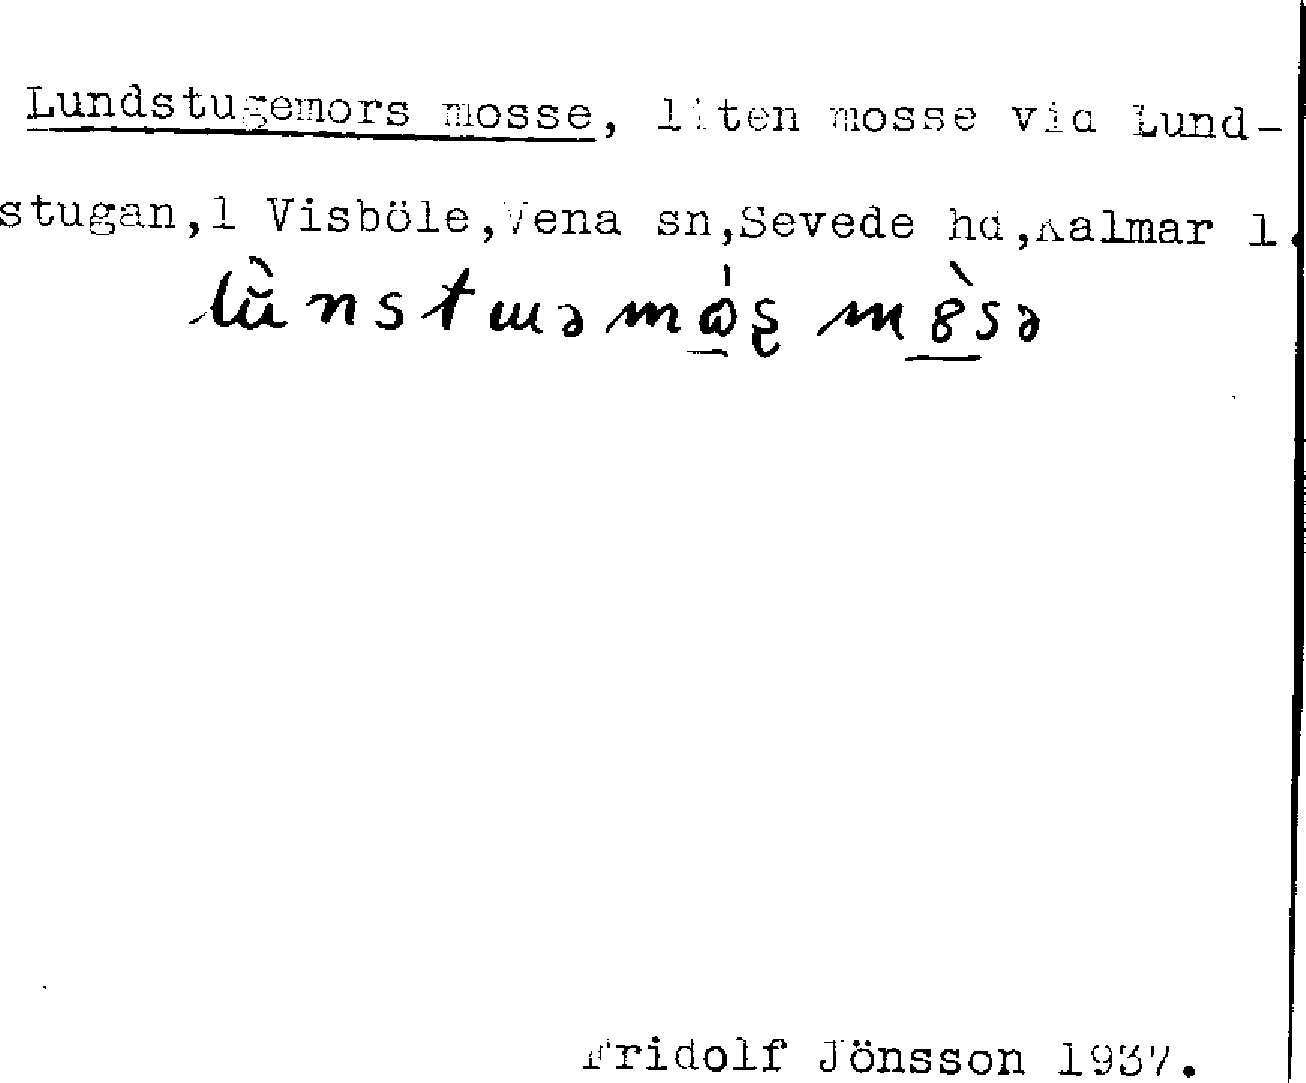 Lundstugemors mosse, liten mosse vid Lund-
stugan,1 Visböle,Vena sn,Sevede hd,Kalmar l.
Fridolf Jönsson 1937.